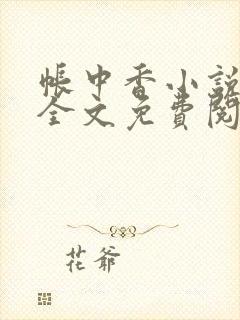 帳中香小說
全文免費閱
花爺